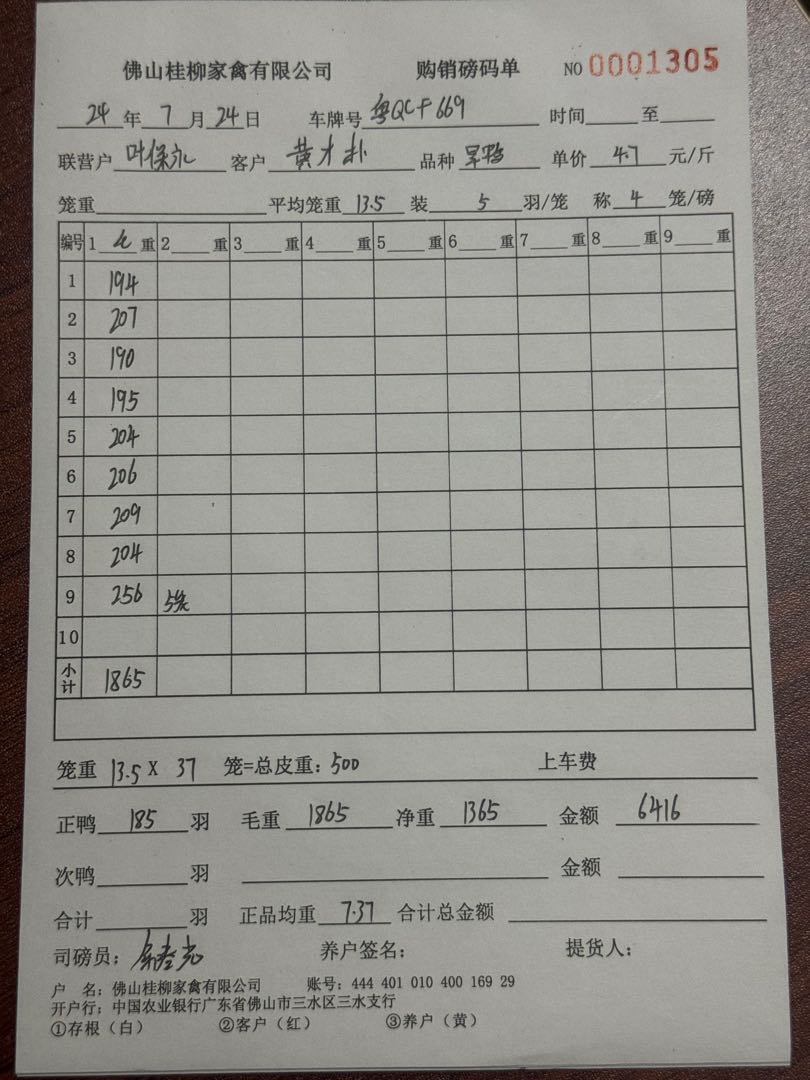 佛山桂柳家禽有限公司 购销磅码单 NO 0001305
24年7月24日 车牌号 粤QCF669 时间 至
联营户 叶保永 客户 黄才朴 品种 旱鸭 单价 4.7 元/斤
笼重 平均笼重 13.5 装 5 羽/笼 称 4 笼/磅
编号 1 毛 重 2 重 3 重 4 重 5 重 6 重 7 重 8 重 9 重
1 194
2 207
3 190
4 195
5 204
6 206
7 209
8 204
9 256 5笼
10
小计 1865
笼重 13.5 X 37 笼=总皮重：500 上车费
正鸭 185 羽 毛重 1865 净重 1365 金额 6416
次鸭 羽 金额
合计 羽 正品均重 7.37 合计总金额
司磅员： 养户签名： 提货人：
户 名：佛山桂柳家禽有限公司 账号：444 401 010 400 169 29
开户行：中国农业银行广东省佛山市三水区三水支行
①存根（白） ②客户（红） ③养户（黄）